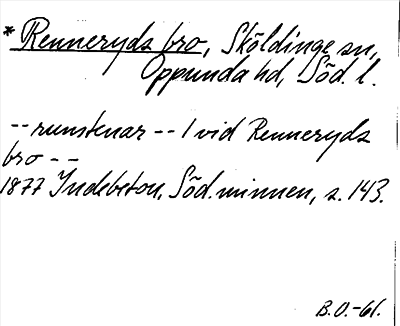 * Renneryds bro, Sköldinge sn,
Oppunda hd, Söd. l.
-- runstenar -- 1 vid Renneryds
bro --
1877 Indebetou, Söd. minnen, s. 143.
B.O.-61.